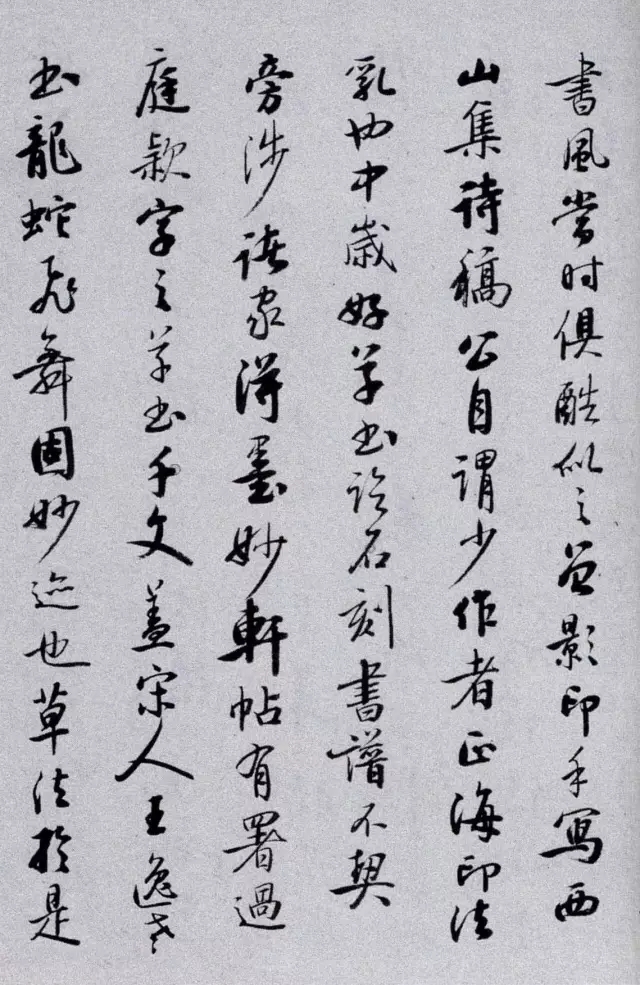 書風當时俱酷似之曾影印手寫西
山集诗稿公自謂少作者正海印法
乳也中歲好草书临石刻書譜不契
旁涉诸家得墨妙軒帖有署過
庭款字之草书千文蓋宋人王逸老
书龍蛇飛舞固妙迹也草法於是